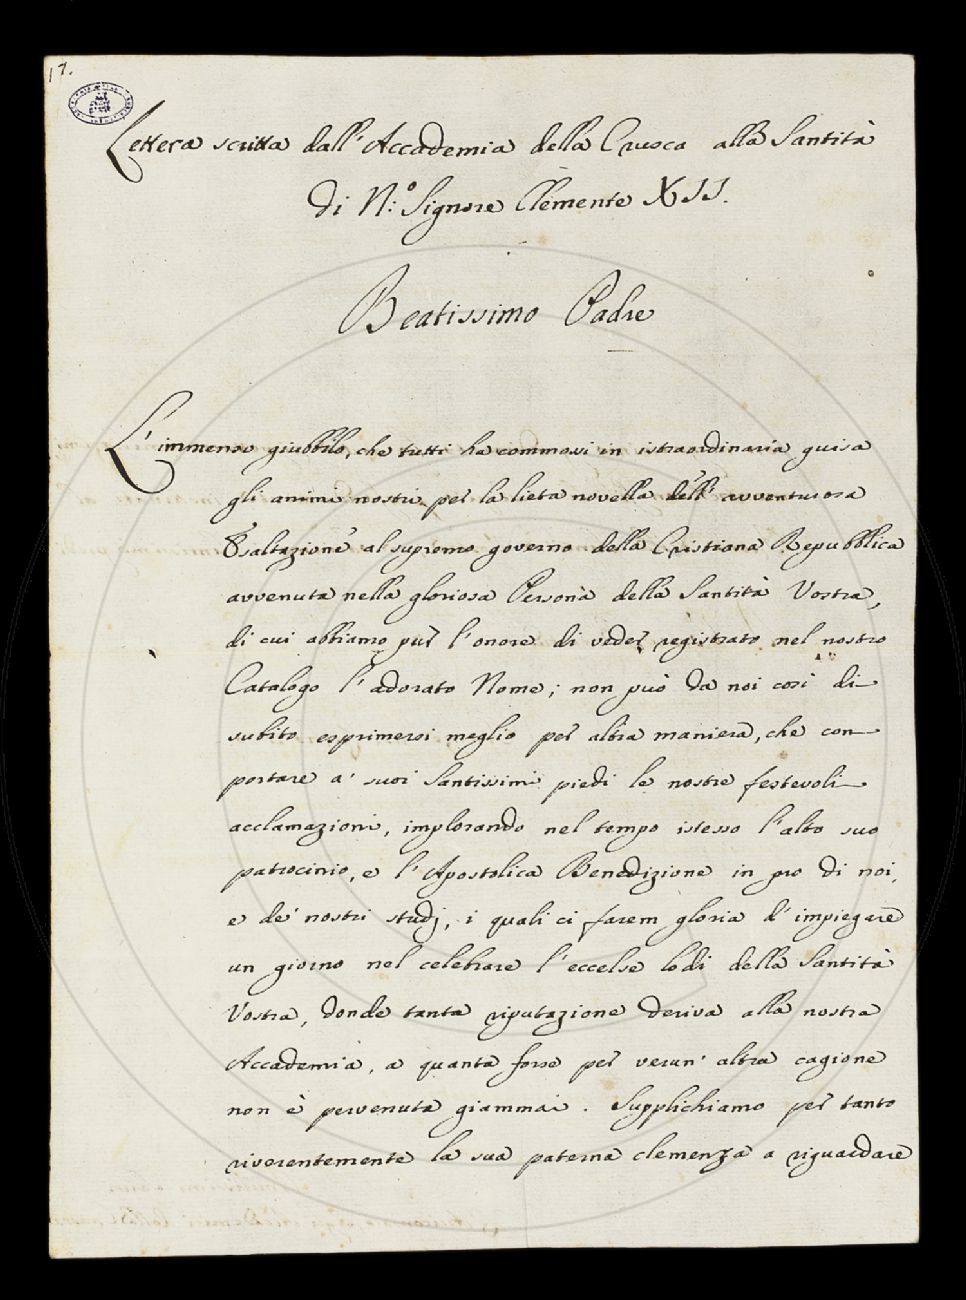 17.
Lettera scritta dall'Accademia della Crusca alla Santità
di N:º Signore Clemente XII.
Beatissimo Padre
L'immenso giubbilo, che tutti ha commossi in istraordinaria guisa
gli animi nostri per la lieta novella dell' avventurosa
Esaltazione al supremo governo della Cristiana Repubblica
avvenuta nella gloriosa Persona della Santità Vostra,
di cui abbiamo pur l'onore di veder registrato nel nostro
Catalogo l'adorato Nome; non può da noi così di
subito esprimersi meglio per altra maniera, che con
portare a' suoi Santissimi piedi le nostre festevoli
acclamazioni, implorando nel tempo istesso l'alto suo
patrocinio, e l'Apostolica Benedizione in pro di noi,
e de' nostri studj, i quali ci farem gloria d'impiegare
un giorno nel celebrare l'eccelse lodi della Santità
Vostra, donde tanta riputazione deriva alla nostra
Accademia, a quanta forse per verun' altra cagione
non è pervenuta giammai. Supplichiamo per tanto
riverentemente la sua paterna clemenza a riguardare